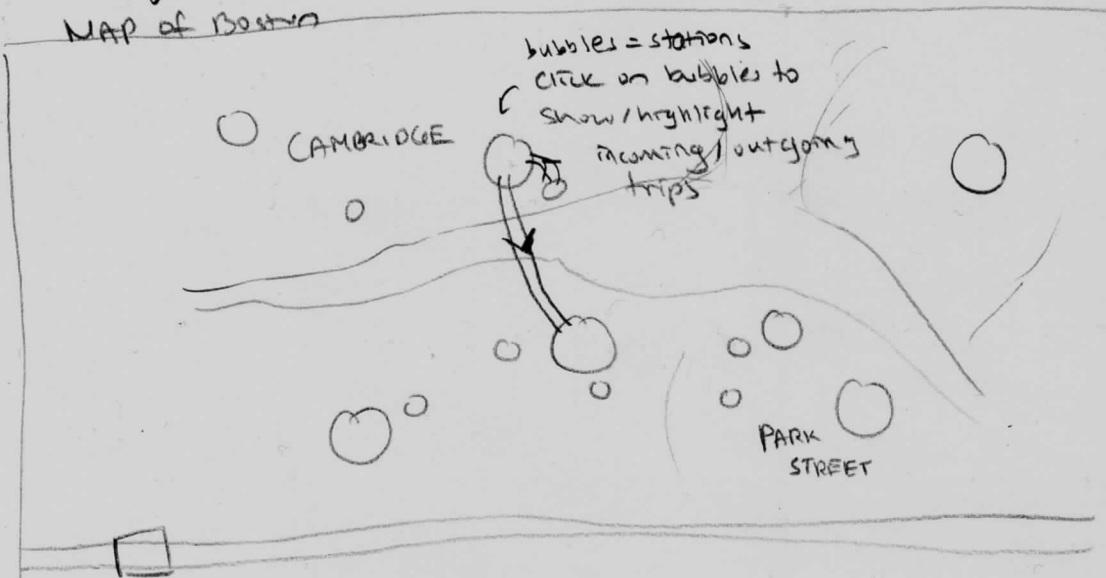 MAP of Boston
bubbles = stations
click on bubbles to
show/highlight
incoming/outgoing
trips
CAMBRIDGE
PARK
STREET